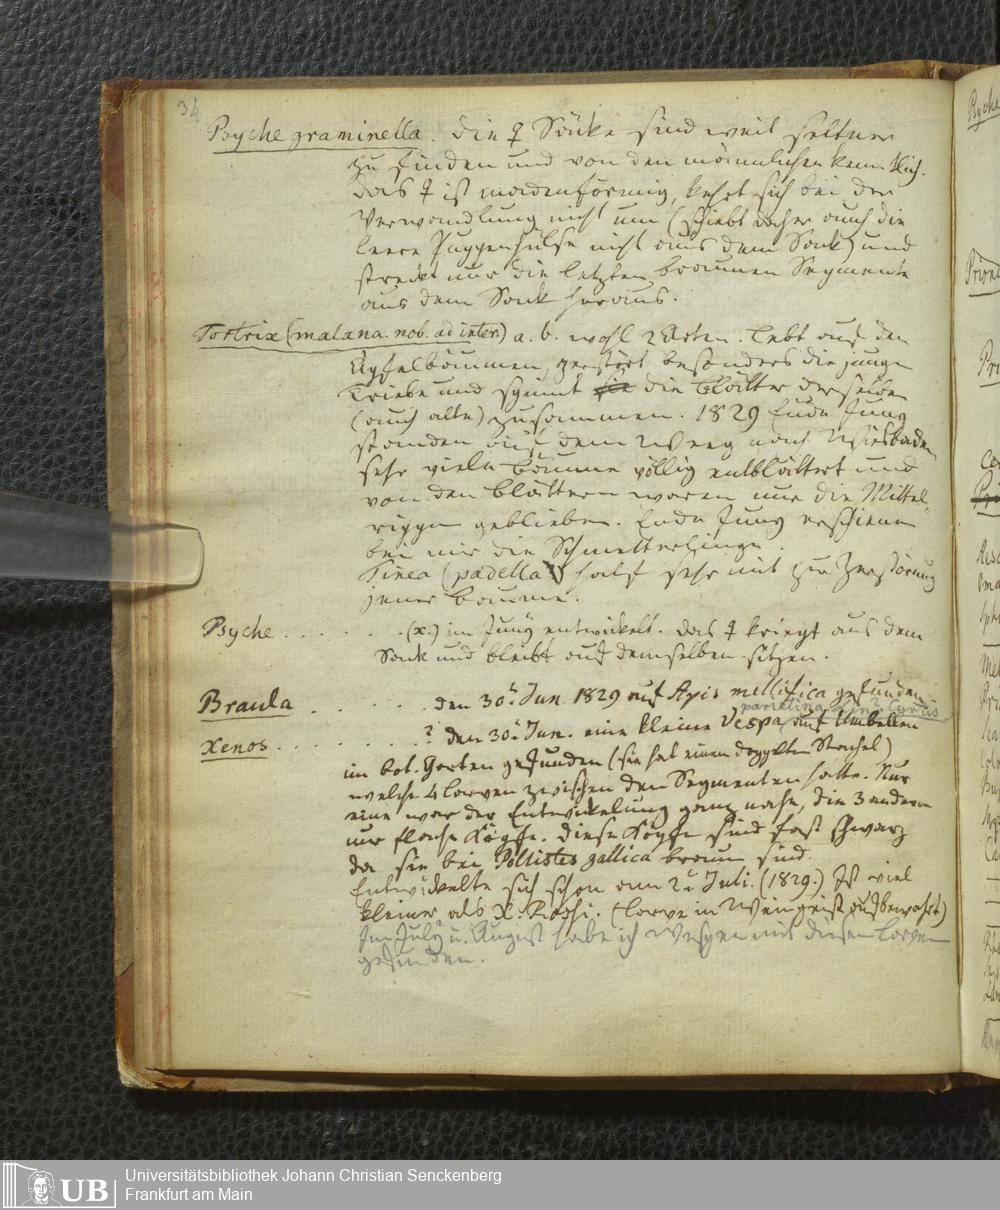 34
Psyche graminella. Die ♀ Säcke sind weit seltner
zu finden und von den männlichen kenntlich.
Das ♀ ist madenförmig, kehrt sich bei der
Verwandlung nicht um (schiebt daher auch die
leere Puppenhülse nicht aus dem Sack) und
streckt nur die letzten braunen Segmente
aus dem Sack heraus.
Tortrix (malana. nob. ad inter.) a. b. wohl 2 Arten. Lebt auf den
Apfelbäumen, zerstört besonders die jungen
Triebe und spinnt die Blätter derselben
(auch alte) zusammen. 1829 Ende Juny
standen auf dem Weeg nach Wiesbaden
sehr viele Bäume völlig entblättert und
von den Blättern waren nur die Mittel-
rippen geblieben. Ende Juny erschienen
bei mir die Schmetterlinge.
Tinea (padella?) half sehr mit zur Zerstörung
jener Bäume.
Psyche . . . . . . . (x.) im Juny entwickelt. Das ♀ kriegt aus dem
Sack und bleibt auf demselben sitzen.
Braula . . . . . . den 30t Jun. 1829 auf Apis mellifica gefunden
parietina Curtis
Xenos . . . . . . . . ? den 30t Jun. eine kleine Vespa auf Umbellen
im bot. Garten gefunden (sie hat einen doppelten Stachel)
welche 4 Larven zwischen den Segmenten hatte. Nur
eine war der Entwickelung ganz nahe, die 3 andern
nur flache Köpfe. Diese Köpfe sind fast schwarz
da sie bei Pollistes gallica braun sind.
Entwickelte sich schon am 2t Juli. (1829.) Ist viel
kleiner als X. Rossi. (Larve in Weingeist aufbewahrt)
Im July u. August habe ich Wespen mit diesen Larven
gefunden.
Universitätsbibliothek Johann Christian Senckenberg
UB
Frankfurt am Main